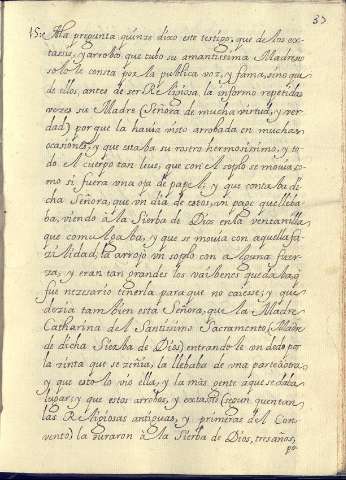 37
15: A la pregunta quinze dixo este testigo, que de los ex-
tassis, y arrobos que tubo su amantissima Madre no
solo le consta por la publica voz, y fama, sino que
de ellos, antes de ser Religiosa, la informo repetidas
vozes su Madre (Señora de mucha virtud, y ver-
dad) por que la havia visto arrobada en muchas
ocasiones, y que estaba su rostro hermosissimo, y to-
do el cuerpo tan leve, que con el soplo se movia co-
mo si fuera una oja de papel, y que contaba di-
cha Señora, que un dia de estos, un page que lleba-
ba, viendo à la Sierba de Dios en la ventanilla
que comulgaba, y que se movia con aquella fa-
zilidad, la arrojo un soplo con alguna fuer-
za, y eran tan grandes los vaibenes que daba, q
fue nezesario tenerla para que no caiese; y que
dezia tambien esta Señora, que la Madre
Catharina del Santissimo Sacramento (Madre
de dicha Sierba de Dios) entrando le un dedo por
la zinta que se zeñia, la llebaba de una parte à otra,
y que esto lo vio ella, y la más gente que se daba
lugar; y que estos arrobos, y extassis (segun quentan
las Religiosas antiguas, y primeras del Con-
vento) la duraron à la Sierba de Dios, tres años,